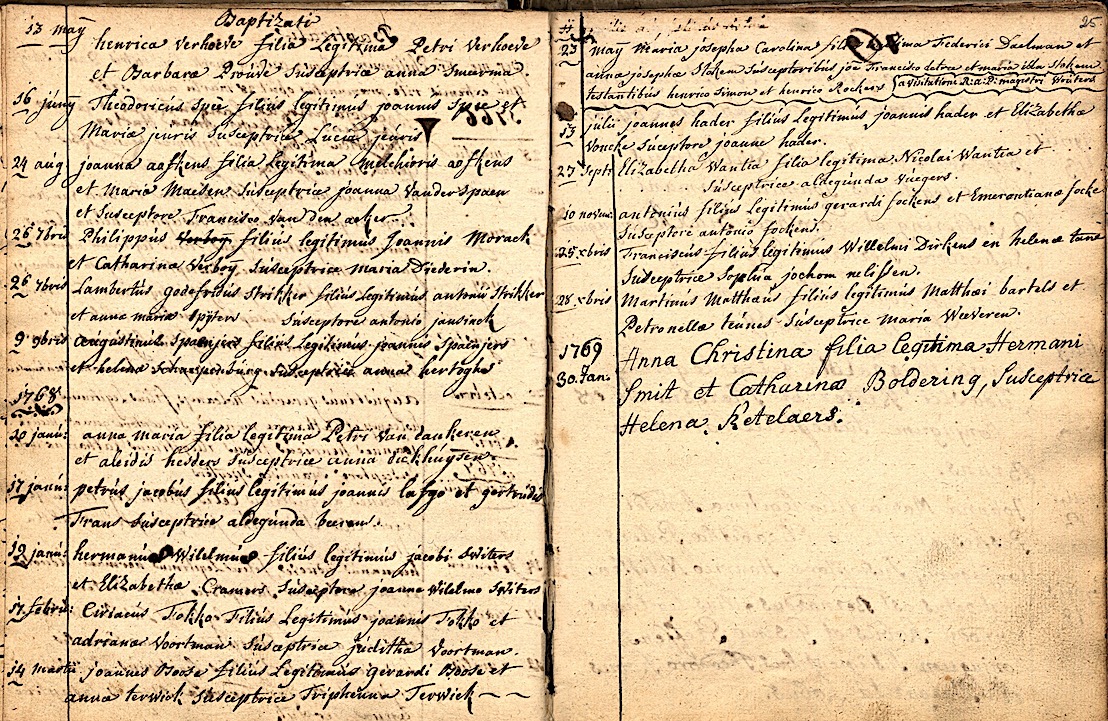 Baptizati
13 may
henrica Verhoeve filia Legitima Petri Verhoeve
et Barbara Proude Susceptrice anna Smeerma.
16 júny Theodoricús Spee filiús legitimús joannis Spee et
Maria jeuris Susceptrice Lucia jeuris
24 aug joanna aafkens filia Legitima Melchioris aafkens
et Maria Maesen Susceptrice joanna Vander Spaen
et Susceptore Francisco van den acker
26 7bris Philippús Verboy filiús legitimús Joannis Morack
et Catharinæ Verboy Súsceptrice Maria Diederin.
26 7bris Lambertús godefridús Strikker filiús legitimús antonii Strikker
et anna maria Spÿters Susceptore antonio jansinck
9 9bris aúgústinús Spanjers filiús Legitimús joannis Spanjers
et helena Susceptrice anna hertoghs
1768
20 janú: anna maria filia legitima Petri Van dankeren
et aleidis hesders Susceptrice anna dickhúÿsen.
17 janu: petrús jacobús filiús legitimús joannis lafge et gertrúdis
Frans Súsceptrice aldegúnda beerens.
19 janú: hermanús Wilelmús filiús legitimús jacobi Switers
et Elizabetha Cramers Susceptore joanne Wilelmo Switers
17 febrú: Ciriacús Tokko Filiús Legitimús joannis Tokko et
adriana Voortman Súsceptrice júditha Voortman.
14 martii joannes Boose filiús Legitimús Gerardi Boose et
anna terwick Susceptrice Triphenna Terwick
25
23 may Maria josepha Carolina Federici Daelman et
anna josepha Stokem Súsceptoribús joe Francisco detrea et maria illa Stokem
testantibús henrico Simon et henrico Rockers a visitatione R: a: P: magistri Wouters
13 júlii joannes hader filiús Legitimús joannis hader et Elizabetha
Voncke Suceptore joanne hader.
27 Septr Elizabetha Wantia filia legitima Nicolai Wantia et
Súsceptrice aldegúnda Viegers.
10 novem: antoniús filiús Legitimús gerardi fockens et Emerentianæ focke
Susceptore antonio fockens.
25 xbris Franciscús filiús legitimús Willelmi Dirkens en helenæ tans
Susceptrice Sophia jochom nelissen.
28 xbris Martinus Matthæús filiús legitimús Matthæi bartels et
Petronellæ teunes Súsceptrice Maria Weeveren.
1769 Anna Christina filia legitima Hermani
30. Jan: Smit et Catharinæ Boldering, Susceptrice
Helena Ketelaers.